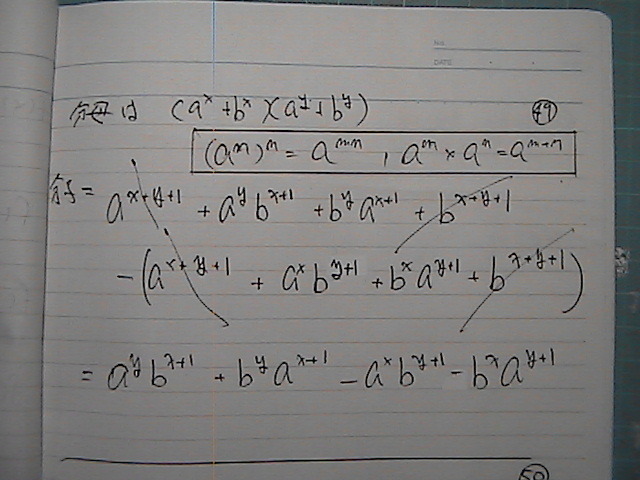 No.
DATE
分母は (aˣ+bˣ)(aʸ+bʸ) ㊾
(aᵐ)ⁿ = aᵐⁿ , aᵐ × aⁿ = aᵐ⁺ⁿ
分子 = a^{x+y+1} + a^y b^{x+1} + b^y a^{x+1} + b^{x+y+1}
-(a^{x+y+1} + a^x b^{y+1} + b^x a^{y+1} + b^{x+y+1})
= a^y b^{x+1} + b^y a^{x+1} - a^x b^{y+1} - b^x a^{y+1}
㊿